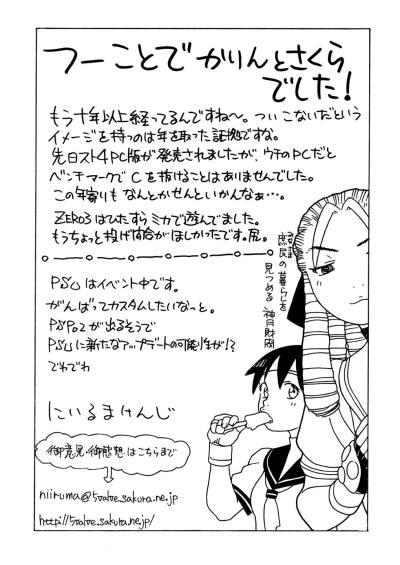 つーことで かりんとさくら
でした!
もう十年以上経ってるんですね〜。ついこないだという
イメージを持つのは年を取った証拠ですな。
先日スト4PC版が発売されましたが、ウチのPCだと
ベンチマークで Cを抜けることはありませんでした。
この年寄りも なんとかせんといかんなぁ…。
ZERO3はひたすらミカで遊んでました。
もうちょっと投げ間合がほしかったです。屁。
PSUはイベント中です。
がんばってカスタムしたいなっと。
PSPo2が出るそうで
PSUに新たなアップデートの可能性が!?
でわでわ
にいるまけんじ
御意見・御感想はこちらまで
niiruma@5valve.sakura.ne.jp
http://5valve.sakura.ne.jp/
庶民の暮らしを
見つめる 神月財閥